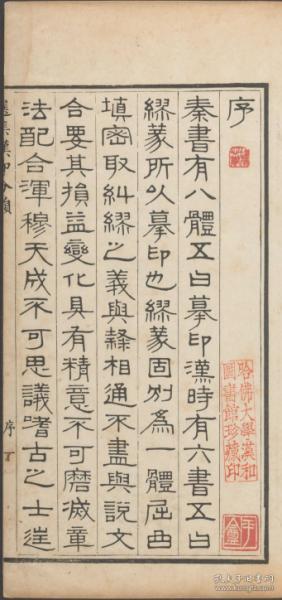 序
秦書有八體五曰摹印漢時有六書五曰
繆篆所以摹印也繆篆固別為一體屈曲
填密取糾繆之義與隸相通不盡與說文
合要其損益變化具有精意不可磨滅章
法配合渾穆天成不可思議嗜古之士
選集漢印分韻
序
哈佛大學漢和
圖書館珍藏印